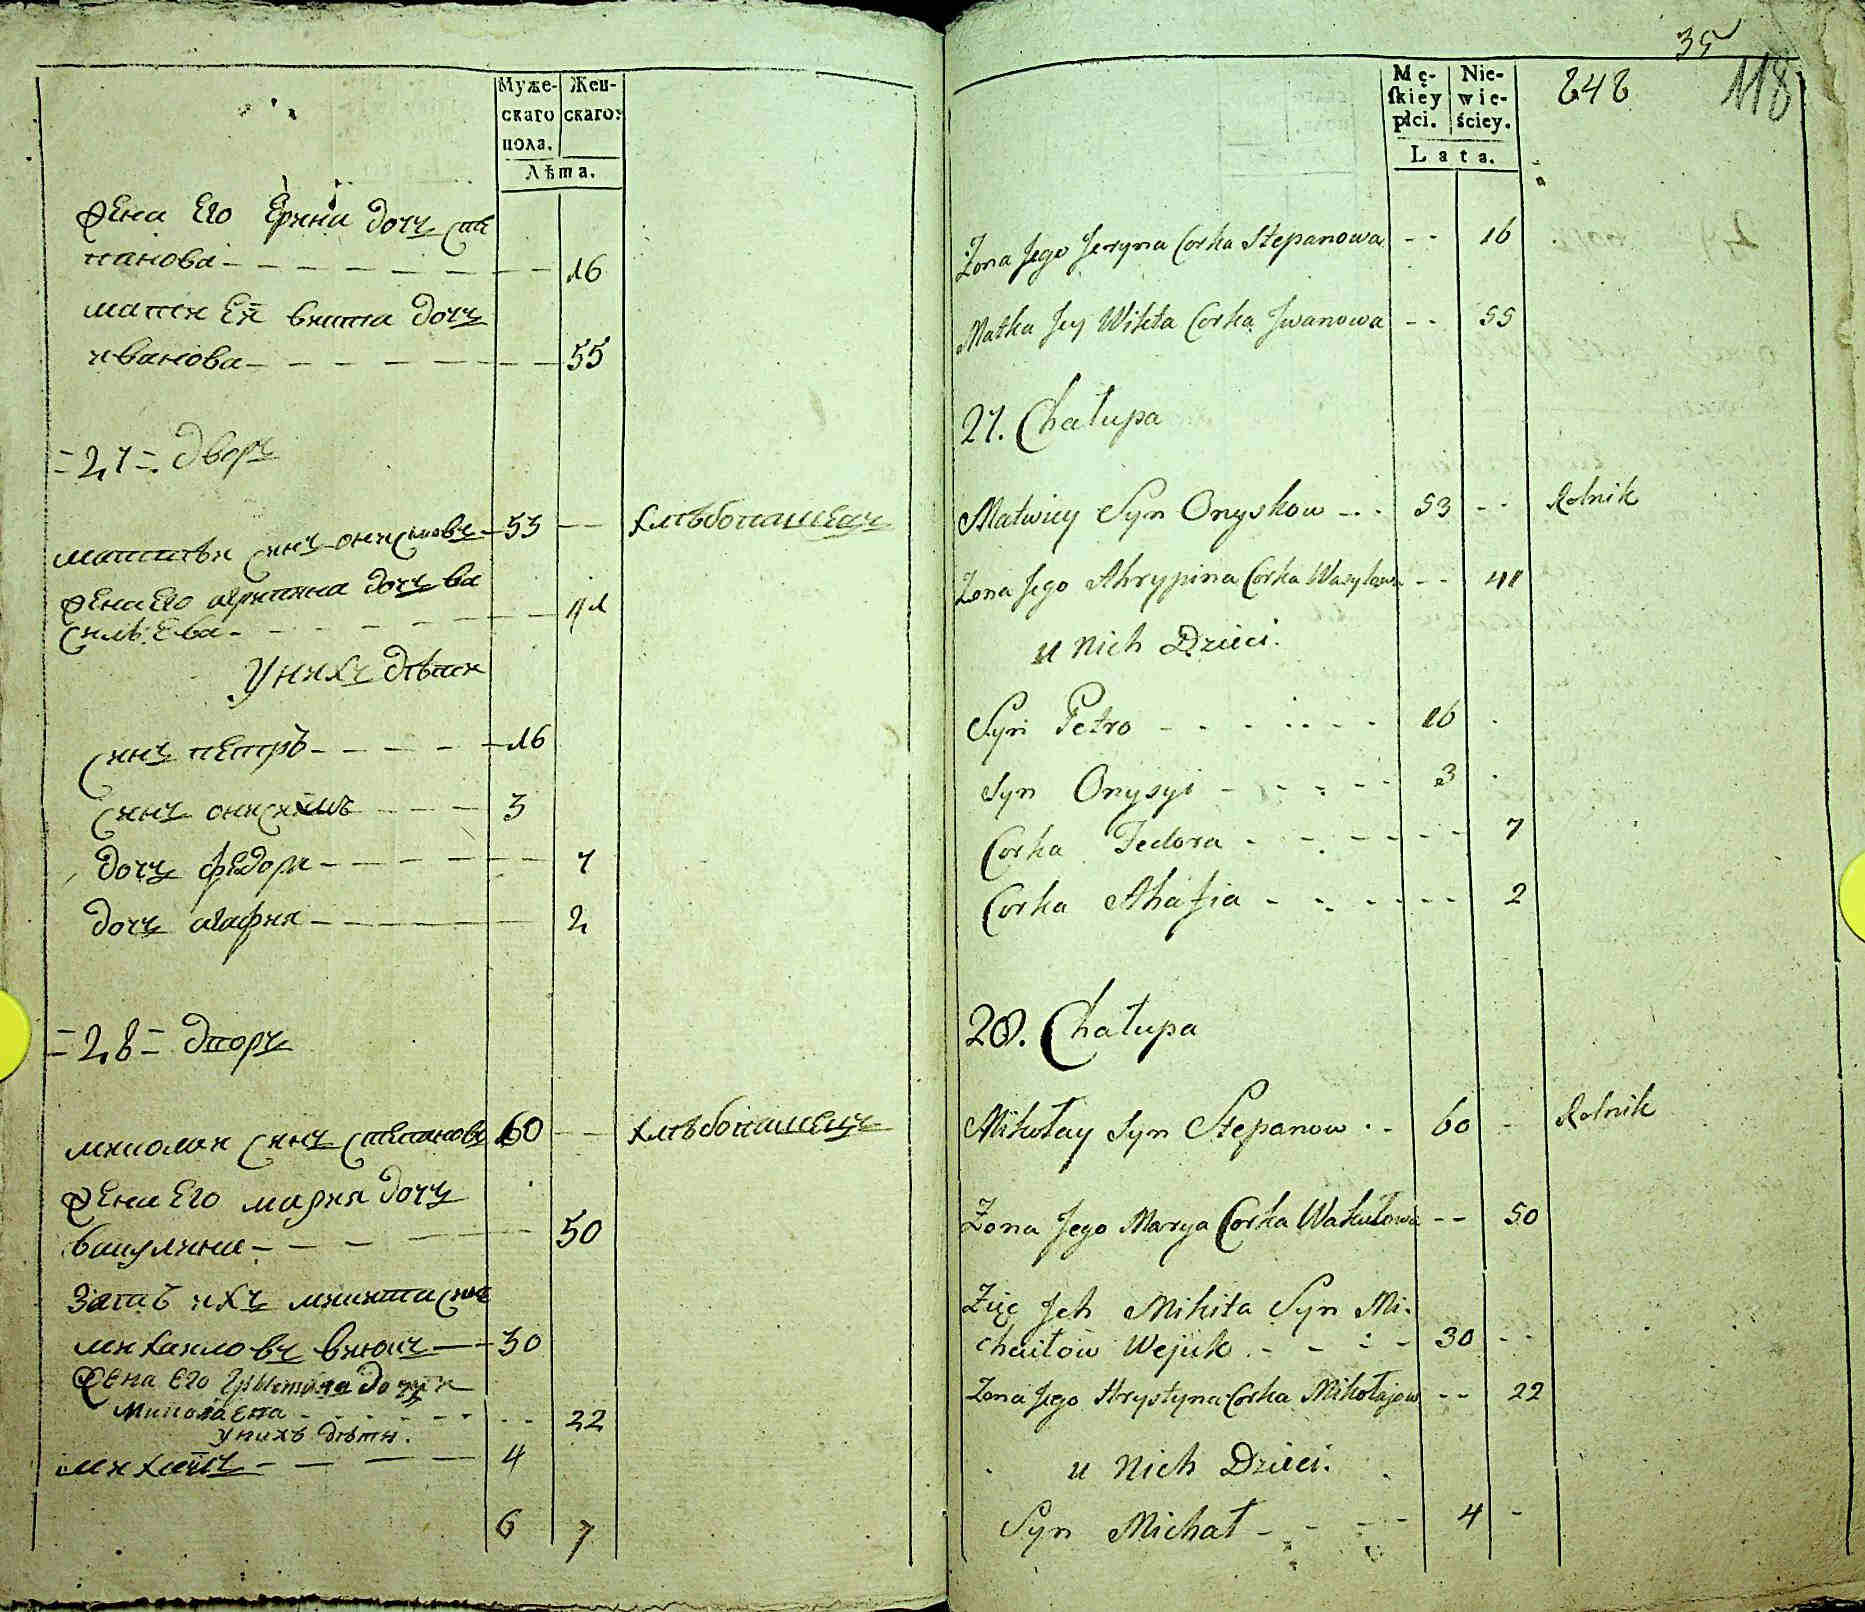 Муже-
скаго
пола.
Жен-
скаго:
Лѣта.
жена Его Ерина дочъ сте
панова - - - - - - 16
мати Ей викта дочъ
иванова - - - - - - 55
= 27 = дворъ
матвѣй синъ онисковъ - 53 - - хлѣбопашецъ
жена Его агрипина дочъ ва
силѣева - - - - - - 41
У нихъ дѣти
синъ петръ - - - - - 16
синъ онисимъ - - - 3
дочъ федора - - - - - 7
дочъ агафия - - - - - 2
= 28 = дворъ
миколай синъ степановъ 60 - - хлѣбопашецъ
жена Его мария дочъ
вакулина - - - - - 50
Зать ихъ микита синъ
михайловъ - 30
жена Его дочъ
миколаева - - - - - - 22
у нихъ дѣти.
михайло - - - - 4
6 7
35
Mę-
ſkiey
płci.
Nie-
wie-
ściey.
Lata.
248
118
Zona Jego Jeryna Corka Stepanowa - - 16
Matka Jey Wikta Corka Jwanowa - - 55
27. Chałupa
Matwiey Syn Onyskow - - 53 - - Rolnik
Zona Jego Ahrypina Corka Wasylowa - - 41
u nich Dzieci.
Syn Petro - - - - - - 16 -
Syn Onysyi - - - - - 3 -
Corka Fedora - - - - - - 7
Corka Ahafia - - - - - - 2
28. Chałupa
Mikołay Syn Stepanow - - 60 - Rolnik
Zona Jego Marya Corka Wakułowa - - 50
Zięć Jch Mikita Syn Mi-
chaiłow Wejuk - - - - 30 - -
Zona Jego Hrystyna Corka Mikołajow - - 22
u nich Dzieci.
Syn Michał - - - - 4 -